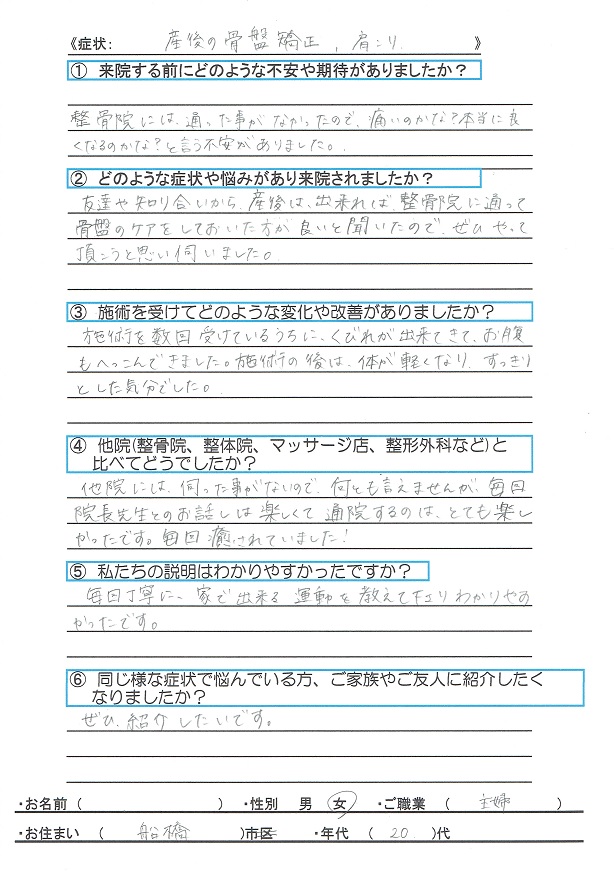 《症状: 産後の骨盤矯正, 肩こり 》
① 来院する前にどのような不安や期待がありましたか?
整骨院には、通った事がなかったので、痛いのかな?本当に良
くなるのかな?と言う不安がありました。
② どのような症状や悩みがあり来院されましたか?
友達や知り合いから、産後は、出来れば、整骨院に通って
骨盤のケアをしておいた方が良いと聞いたので、ぜひやって
頂こうと思い伺いました。
③ 施術を受けてどのような変化や改善がありましたか?
施術を数回受けているうちに、くびれが出来てきて、お腹
もへっこんできました。施術の後は、体が軽くなり、すっきり
とした気分でした。
④ 他院(整骨院、整体院、マッサージ店、整形外科など)と
比べてどうでしたか?
他院には、伺った事がないので、何とも言えませんが、毎回
院長先生とのお話しは楽しくて通院するのは、とても楽し
かったです。毎回癒されていました!
⑤ 私たちの説明はわかりやすかったですか?
毎回丁寧に、家で出来る運動を教えて下さりわかりやす
かったです。
⑥ 同じ様な症状で悩んでいる方、ご家族やご友人に紹介したく
なりましたか?
ぜひ、紹介したいです。
・お名前 ( ) ・性別 男 女 ・ご職業 ( 主婦 )
・お住まい ( 船橋 )市区 ・年代 ( 20 )代